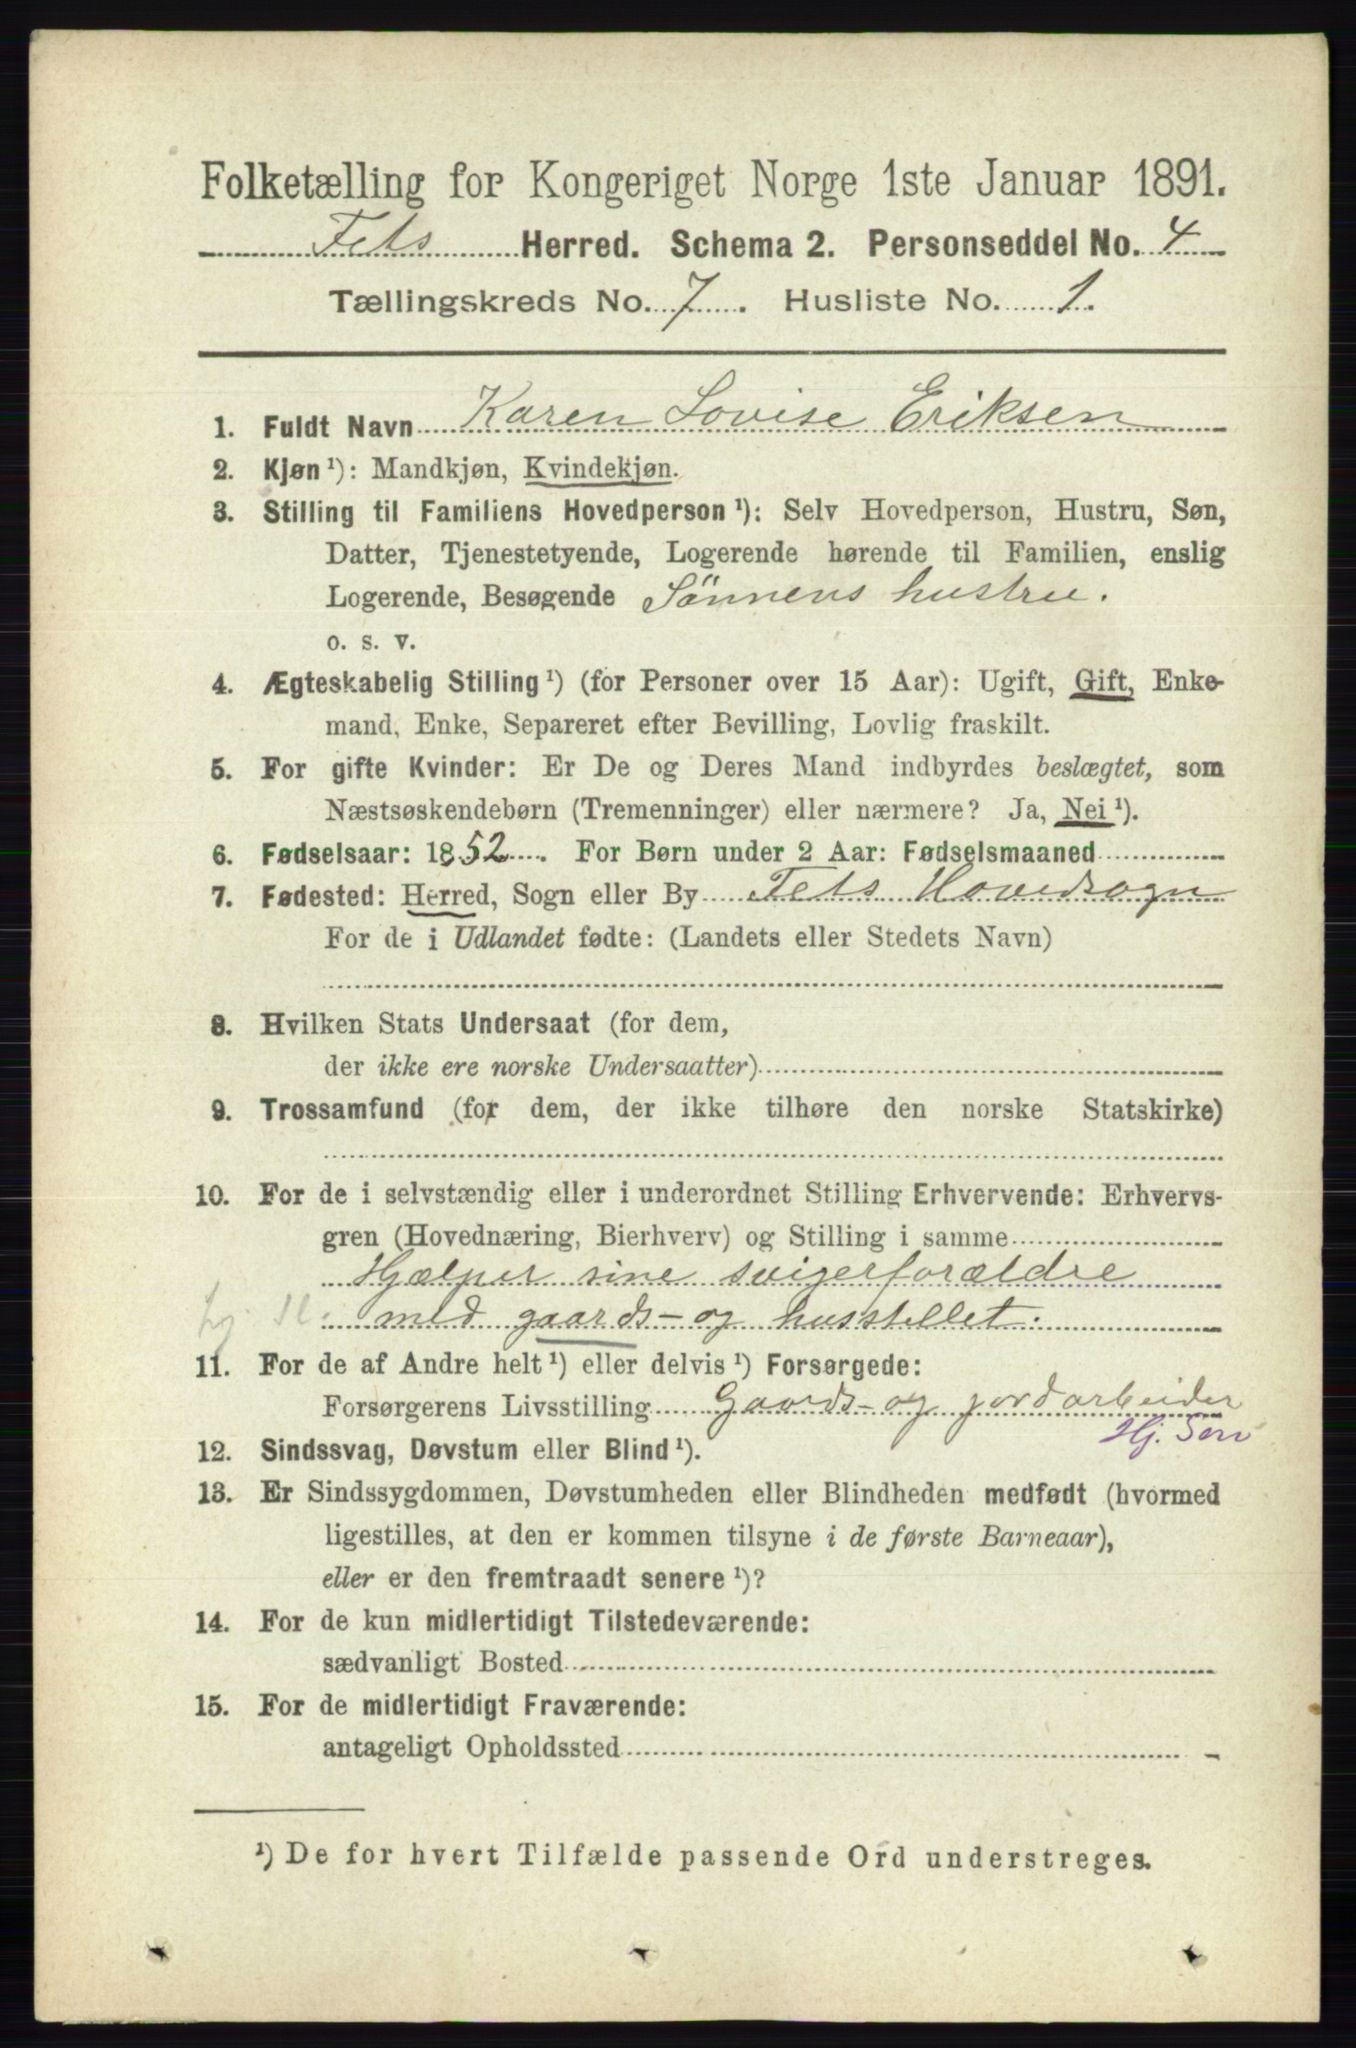 Folketælling for Kongeriget Norge 1ste Januar 1891.
Fets Herred. Schema 2. Personseddel No. 4
Tællingskreds No. 7. Husliste No. 1.
1. Fuldt Navn Karen Lovise Eriksen
2. Kjøn ¹): Mandkjøn, Kvindekjøn.
3. Stilling til Familiens Hovedperson ¹): Selv Hovedperson, Hustru, Søn,
Datter, Tjenestetyende, Logerende hørende til Familien, enslig
Logerende, Besøgende Sönnens hustru.
o. s. v.
4. Ægteskabelig Stilling ¹) (for Personer over 15 Aar): Ugift, Gift, Enke-
mand, Enke, Separeret efter Bevilling, Lovlig fraskilt.
5. For gifte Kvinder: Er De og Deres Mand indbyrdes beslægtet, som
Næstsøskendebørn (Tremenninger) eller nærmere? Ja, Nei ¹).
6. Fødselsaar: 1852. For Børn under 2 Aar: Fødselsmaaned
7. Fødested: Herred, Sogn eller By Fets Hovedsogn
For de i Udlandet fødte: (Landets eller Stedets Navn)
8. Hvilken Stats Undersaat (for dem,
der ikke ere norske Undersaatter)
9. Trossamfund (for dem, der ikke tilhøre den norske Statskirke)
10. For de i selvstændig eller i underordnet Stilling Erhvervende: Erhvervs-
gren (Hovednæring, Bierhverv) og Stilling i samme
Hjælper sine svigerforældre
med gaards- og husstellet.
11. For de af Andre helt ¹) eller delvis ¹) Forsørgede:
Forsørgerens Livsstilling Gaards- og jordarbeider
Hj. Søn
12. Sindssvag, Døvstum eller Blind ¹).
13. Er Sindssygdommen, Døvstumheden eller Blindheden medfødt (hvormed
ligestilles, at den er kommen tilsyne i de første Barneaar),
eller er den fremtraadt senere ¹)?
14. For de kun midlertidigt Tilstedeværende:
sædvanligt Bosted
15. For de midlertidigt Fraværende:
antageligt Opholdssted
¹) De for hvert Tilfælde passende Ord understreges.